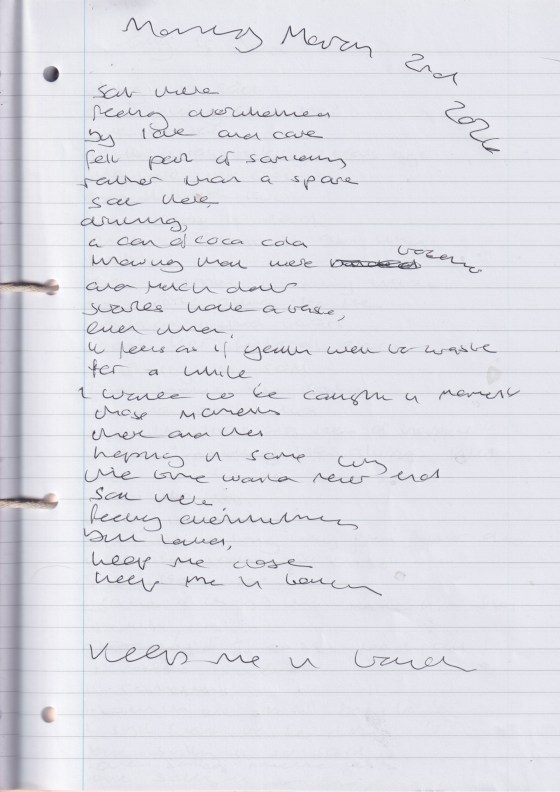 Monday March 2nd
2026
sat there
feeling overwhelmed
by love and care
felt part of something
rather than a spare
sat there
drinking,
a can of coca cola
knowing that were
and much does
have a
even when,
it feels as if
for a while
I wanted to be caught in
those moments
then and there
hoping in some way
the time would never end
sat there
feeling overwhelming
keep me close
keep me in
keep me in